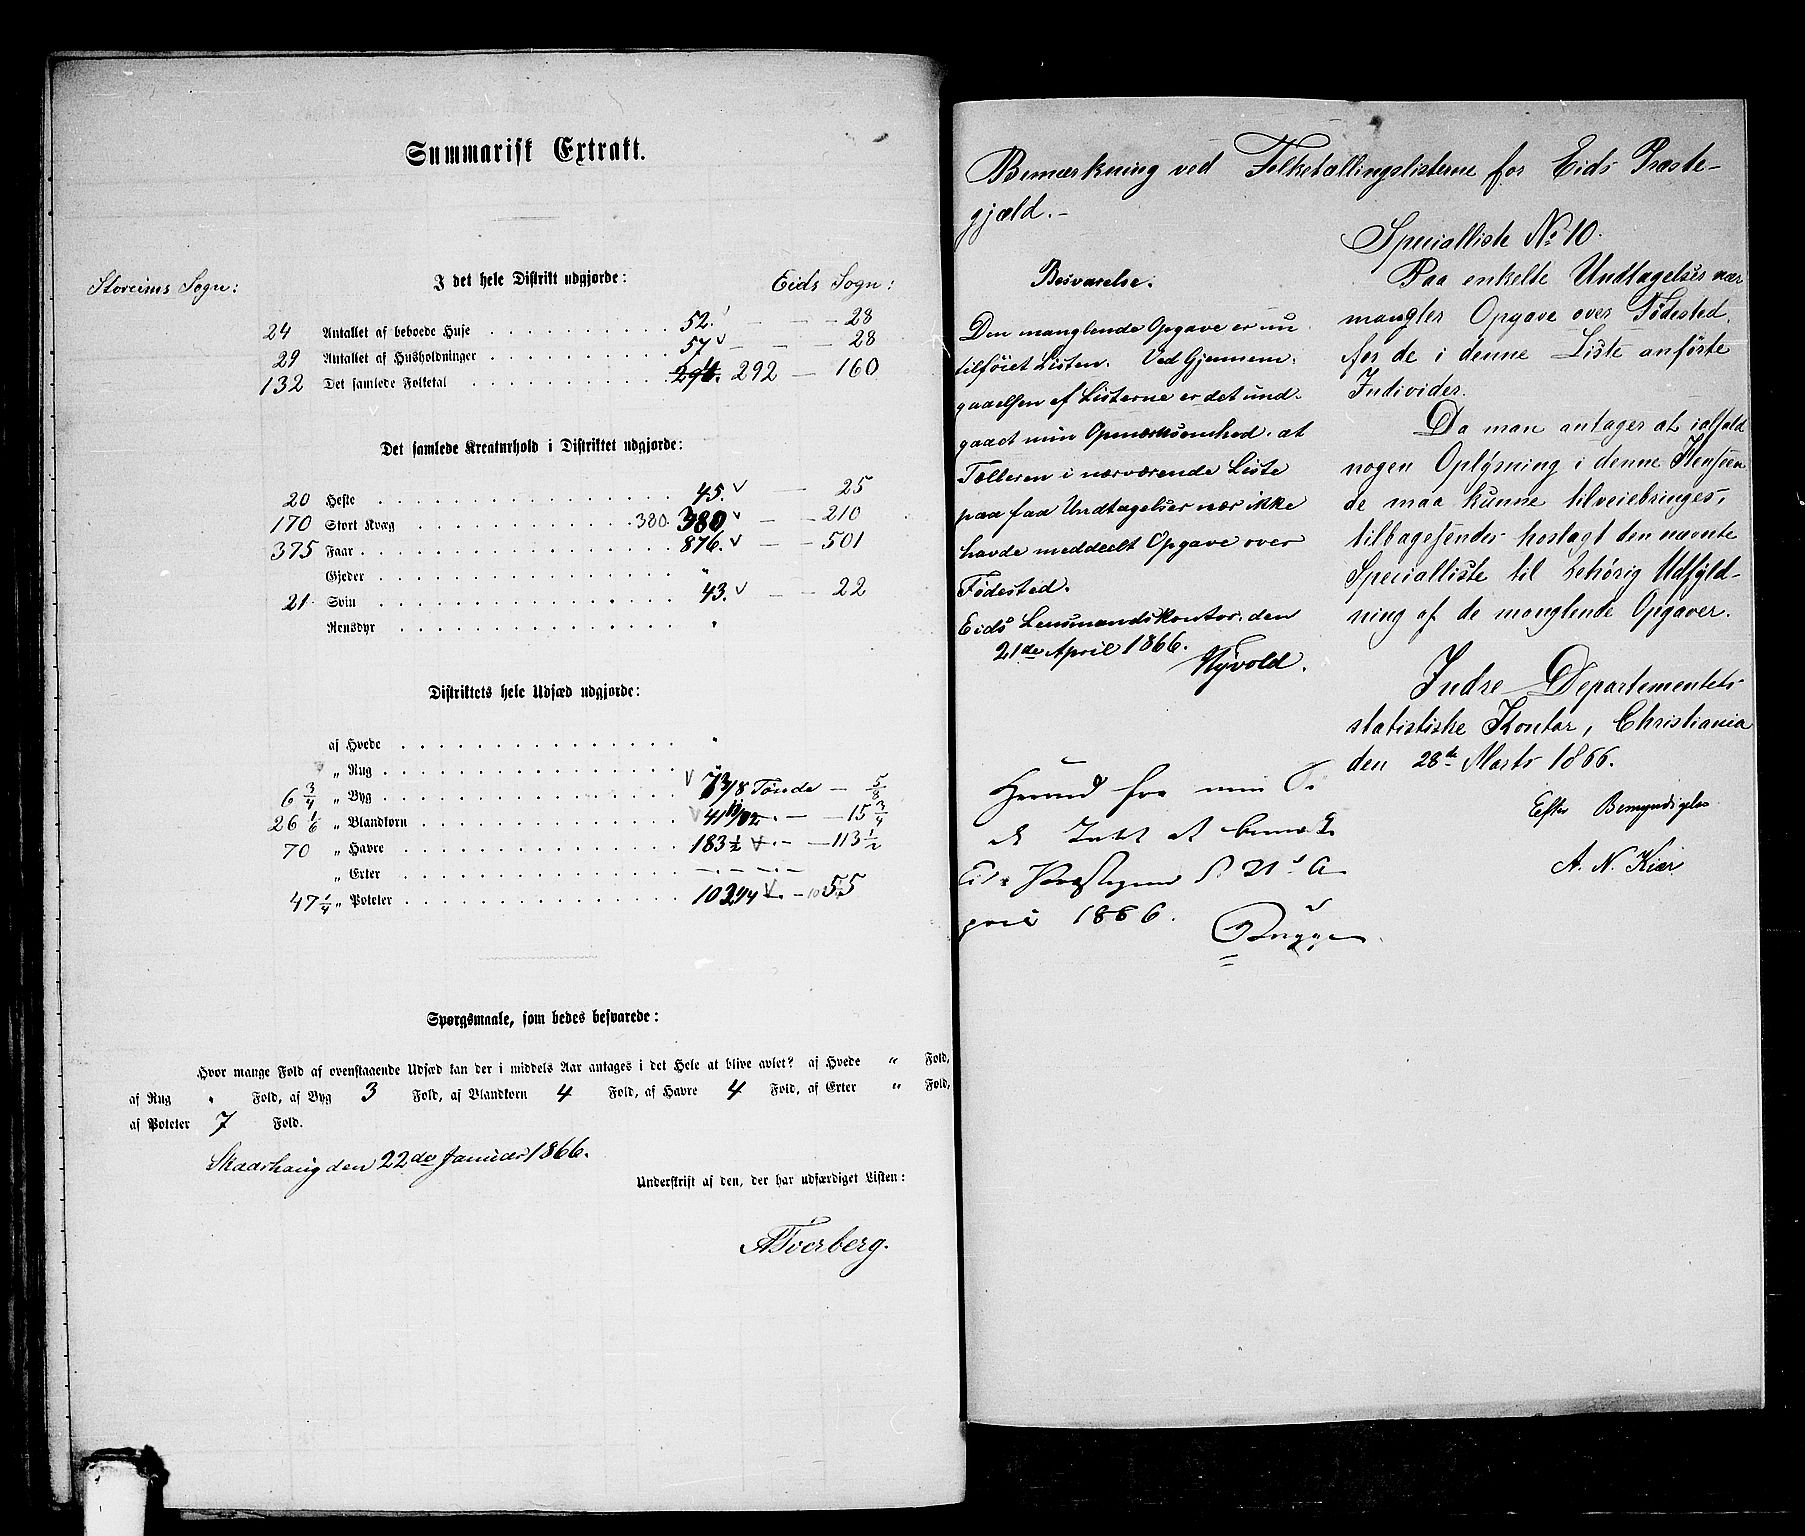 Summarisk Extrakt.
Storeims Sogn: I det hele Distrikt udgjorde: Eids Sogn:
24 Antallet af beboede Huse 52. — 28
29 Antallet af Husholdninger 57 — 28
132 Det samlede Folketal 294. 292 — 160
Det samlede Kreaturhold i Distriktet udgjorde:
20 Heste 45. — 25
170 Stort Kvæg 380. 380 — 210
375 Faar 876. — 501
Gjeder "
21 Svin 43. — 22
Rensdyr "
Distriktets hele Udsæd udgjorde:
af Hvede "
" Rug "
6 3/4 " Byg 7 3/8 Tönde — 5/8
26 1/6 " Blandkorn 41 11/12 — 15 3/4
70 " Havre 183 1/2 — 113 1/2
" Erter — . — . —
47 1/4 " Poteter — 55
Spørgsmaale, som bedes besvarede:
Hvor mange Fold af ovenstaaende Udsæd kan der i middels Aar antages i det Hele at blive avlet? af Hvede " Fold,
af Rug " Fold, af Byg 3 Fold, af Blandkorn 4 Fold, af Havre 4 Fold, af Erter " Fold,
af Poteter 7 Fold.
Skaarhaug den 22de Januar 1866.
Underskrift af den, der har udfærdiget Listen:
ATverberg.
Bemærkning ved Folketællingslisterne for Eids Præste-
gjæld.-
Specialliste No 10.
Paa enkelte Undtagelser nær
mangler Opgave over Fødested
for de i denne Liste anførte
Individer.
Da man antager at ialfald
nogen Oplysning i denne Henseen
de maa kunne tilveiebringes,
tilbagesendes hoslagt den nævnte
Specialliste til behörig Udfyld-
ning af de manglende Opgaver.
Indre-Departementets
statistiske Kontor, Christiania
den 28de Marts 1866.
Efter Bemyndigelse
A. N. Kiær
Besvarelse.
Den manglende Opgave er nu
tilföiet Listen. Ved Gjennem-
gaaelsen af Listerne er det und-
gaaet min Opmærksomhed, at
Tælleren i nærværende Liste
paa faa Undtagelser nær ikke
havde meddeelt Opgave over
Fødested.
Eids Lensmandskontor, den
21de April 1866.
1866.
Bugge